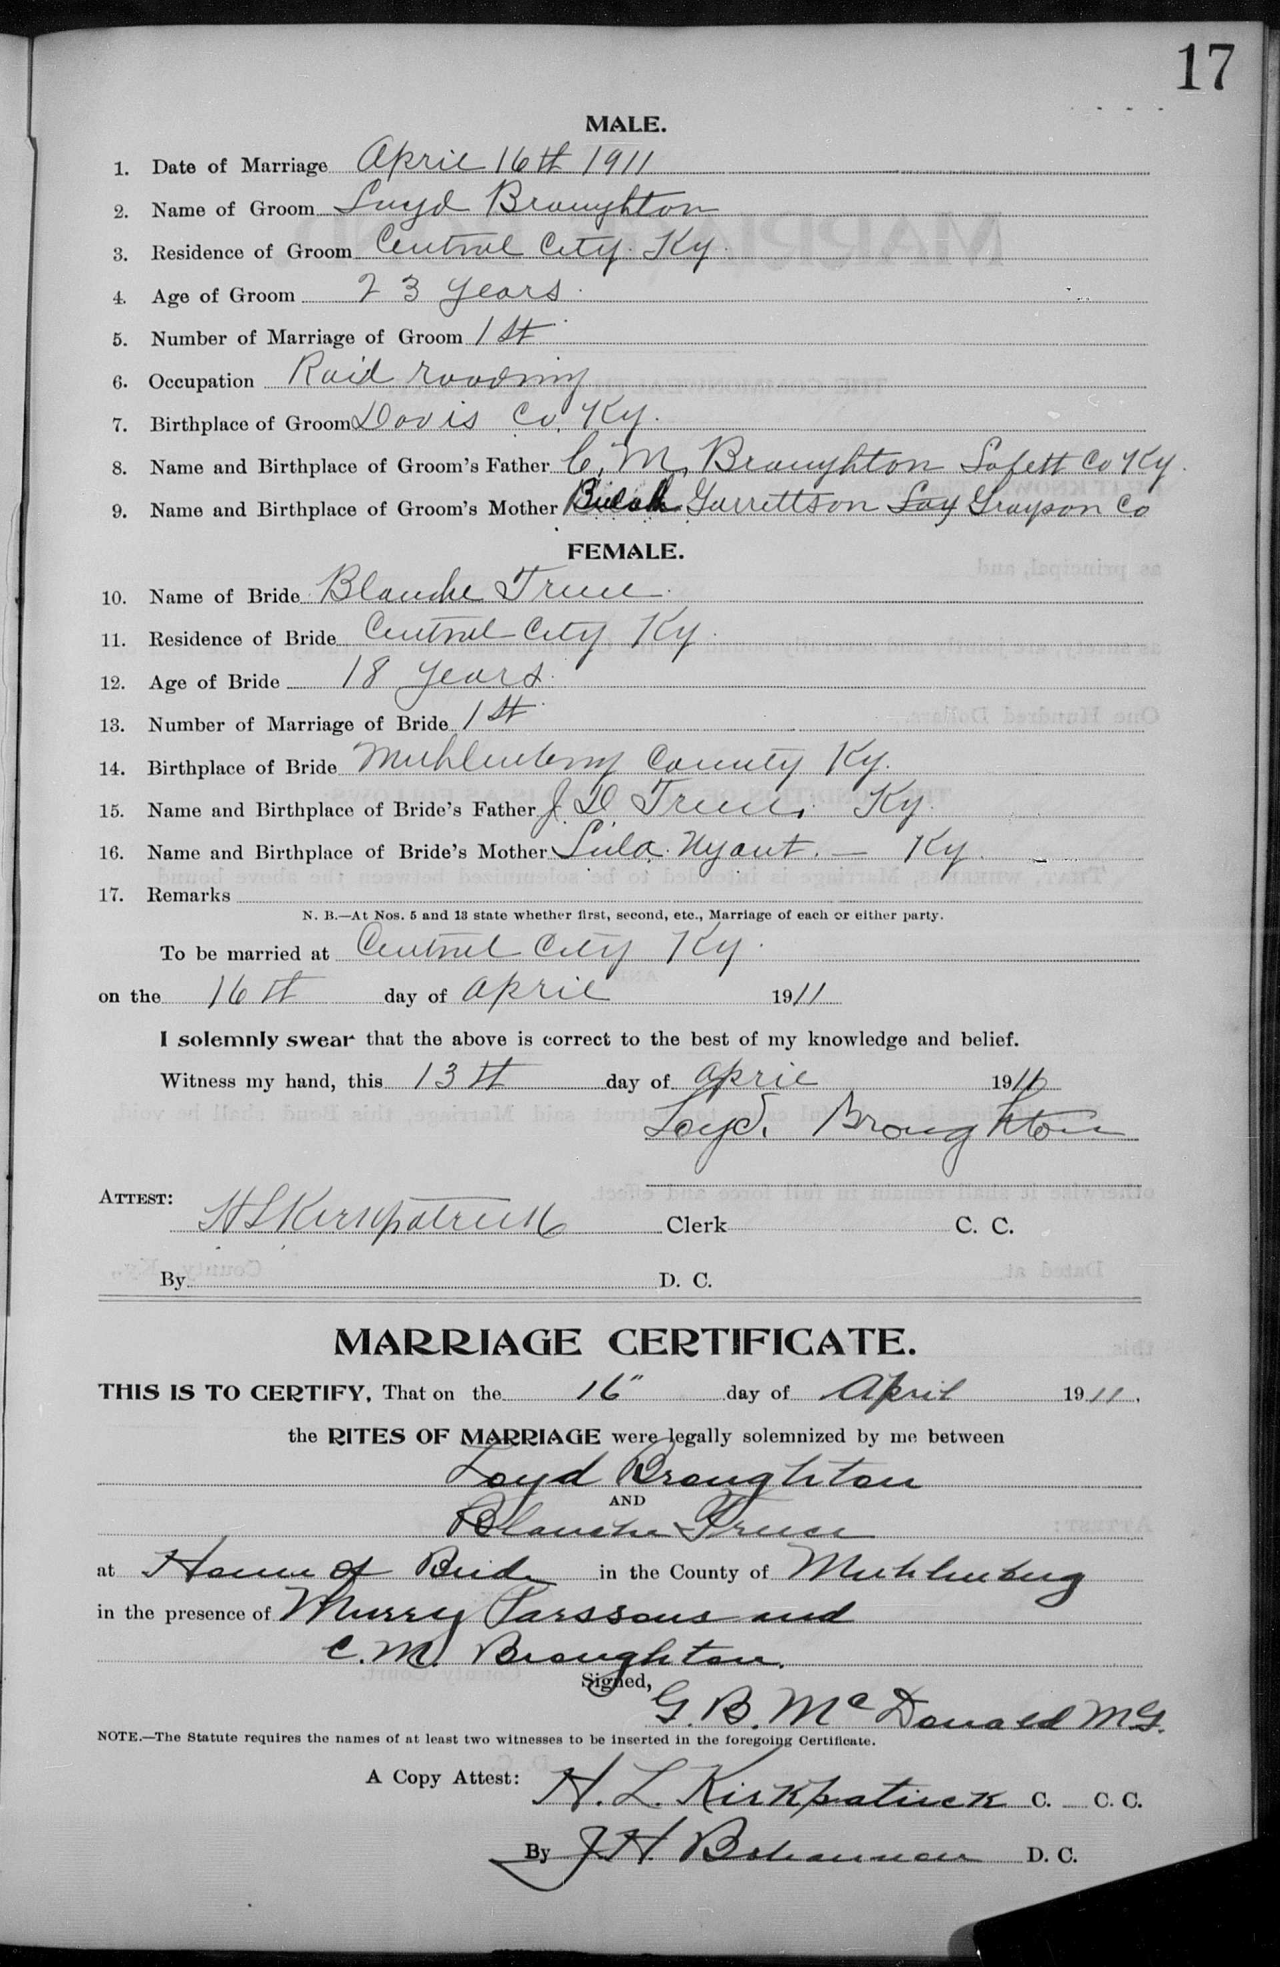 17
MALE.
1. Date of Marriage April 16th 1911
2. Name of Groom Loyd Broughton
3. Residence of Groom Central City. Ky.
4. Age of Groom 23 years.
5. Number of Marriage of Groom 1st
6. Occupation Rail roading
7. Birthplace of Groom Davis Co, Ky.
8. Name and Birthplace of Groom's Father C. M. Broughton Lafett Co Ky.
9. Name and Birthplace of Groom's Mother Garrettson Grayson Co
FEMALE.
10. Name of Bride Blanche
11. Residence of Bride Central City Ky.
12. Age of Bride 18 years.
13. Number of Marriage of Bride 1st
14. Birthplace of Bride Muhlenberg County Ky.
15. Name and Birthplace of Bride's Father J. D. Ky.
16. Name and Birthplace of Bride's Mother Lula — Ky.
17. Remarks
N. B.—At Nos. 5 and 13 state whether first, second, etc., Marriage of each or either party.
To be married at Central City Ky.
on the 16th day of April 1911
I solemnly swear that the above is correct to the best of my knowledge and belief.
Witness my hand, this 13th day of April 1911
Loyd. Broughton
ATTEST:
H L Kirkpatrick Clerk C. C.
By D. C.
MARRIAGE CERTIFICATE.
THIS IS TO CERTIFY, That on the 16" day of April 1911.
the RITES OF MARRIAGE were legally solemnized by me between
Loyd Broughton
AND
Blanche
at Home of Bride in the County of Muhlenburg
in the presence of Murry Parssons and
C. M. Broughton.
Signed,
G. B. McDonald M.G.
NOTE.—The Statute requires the names of at least two witnesses to be inserted in the foregoing Certificate.
A Copy Attest: H. L. Kirkpatrick C. C. C.
By J H. Bohannan D. C.